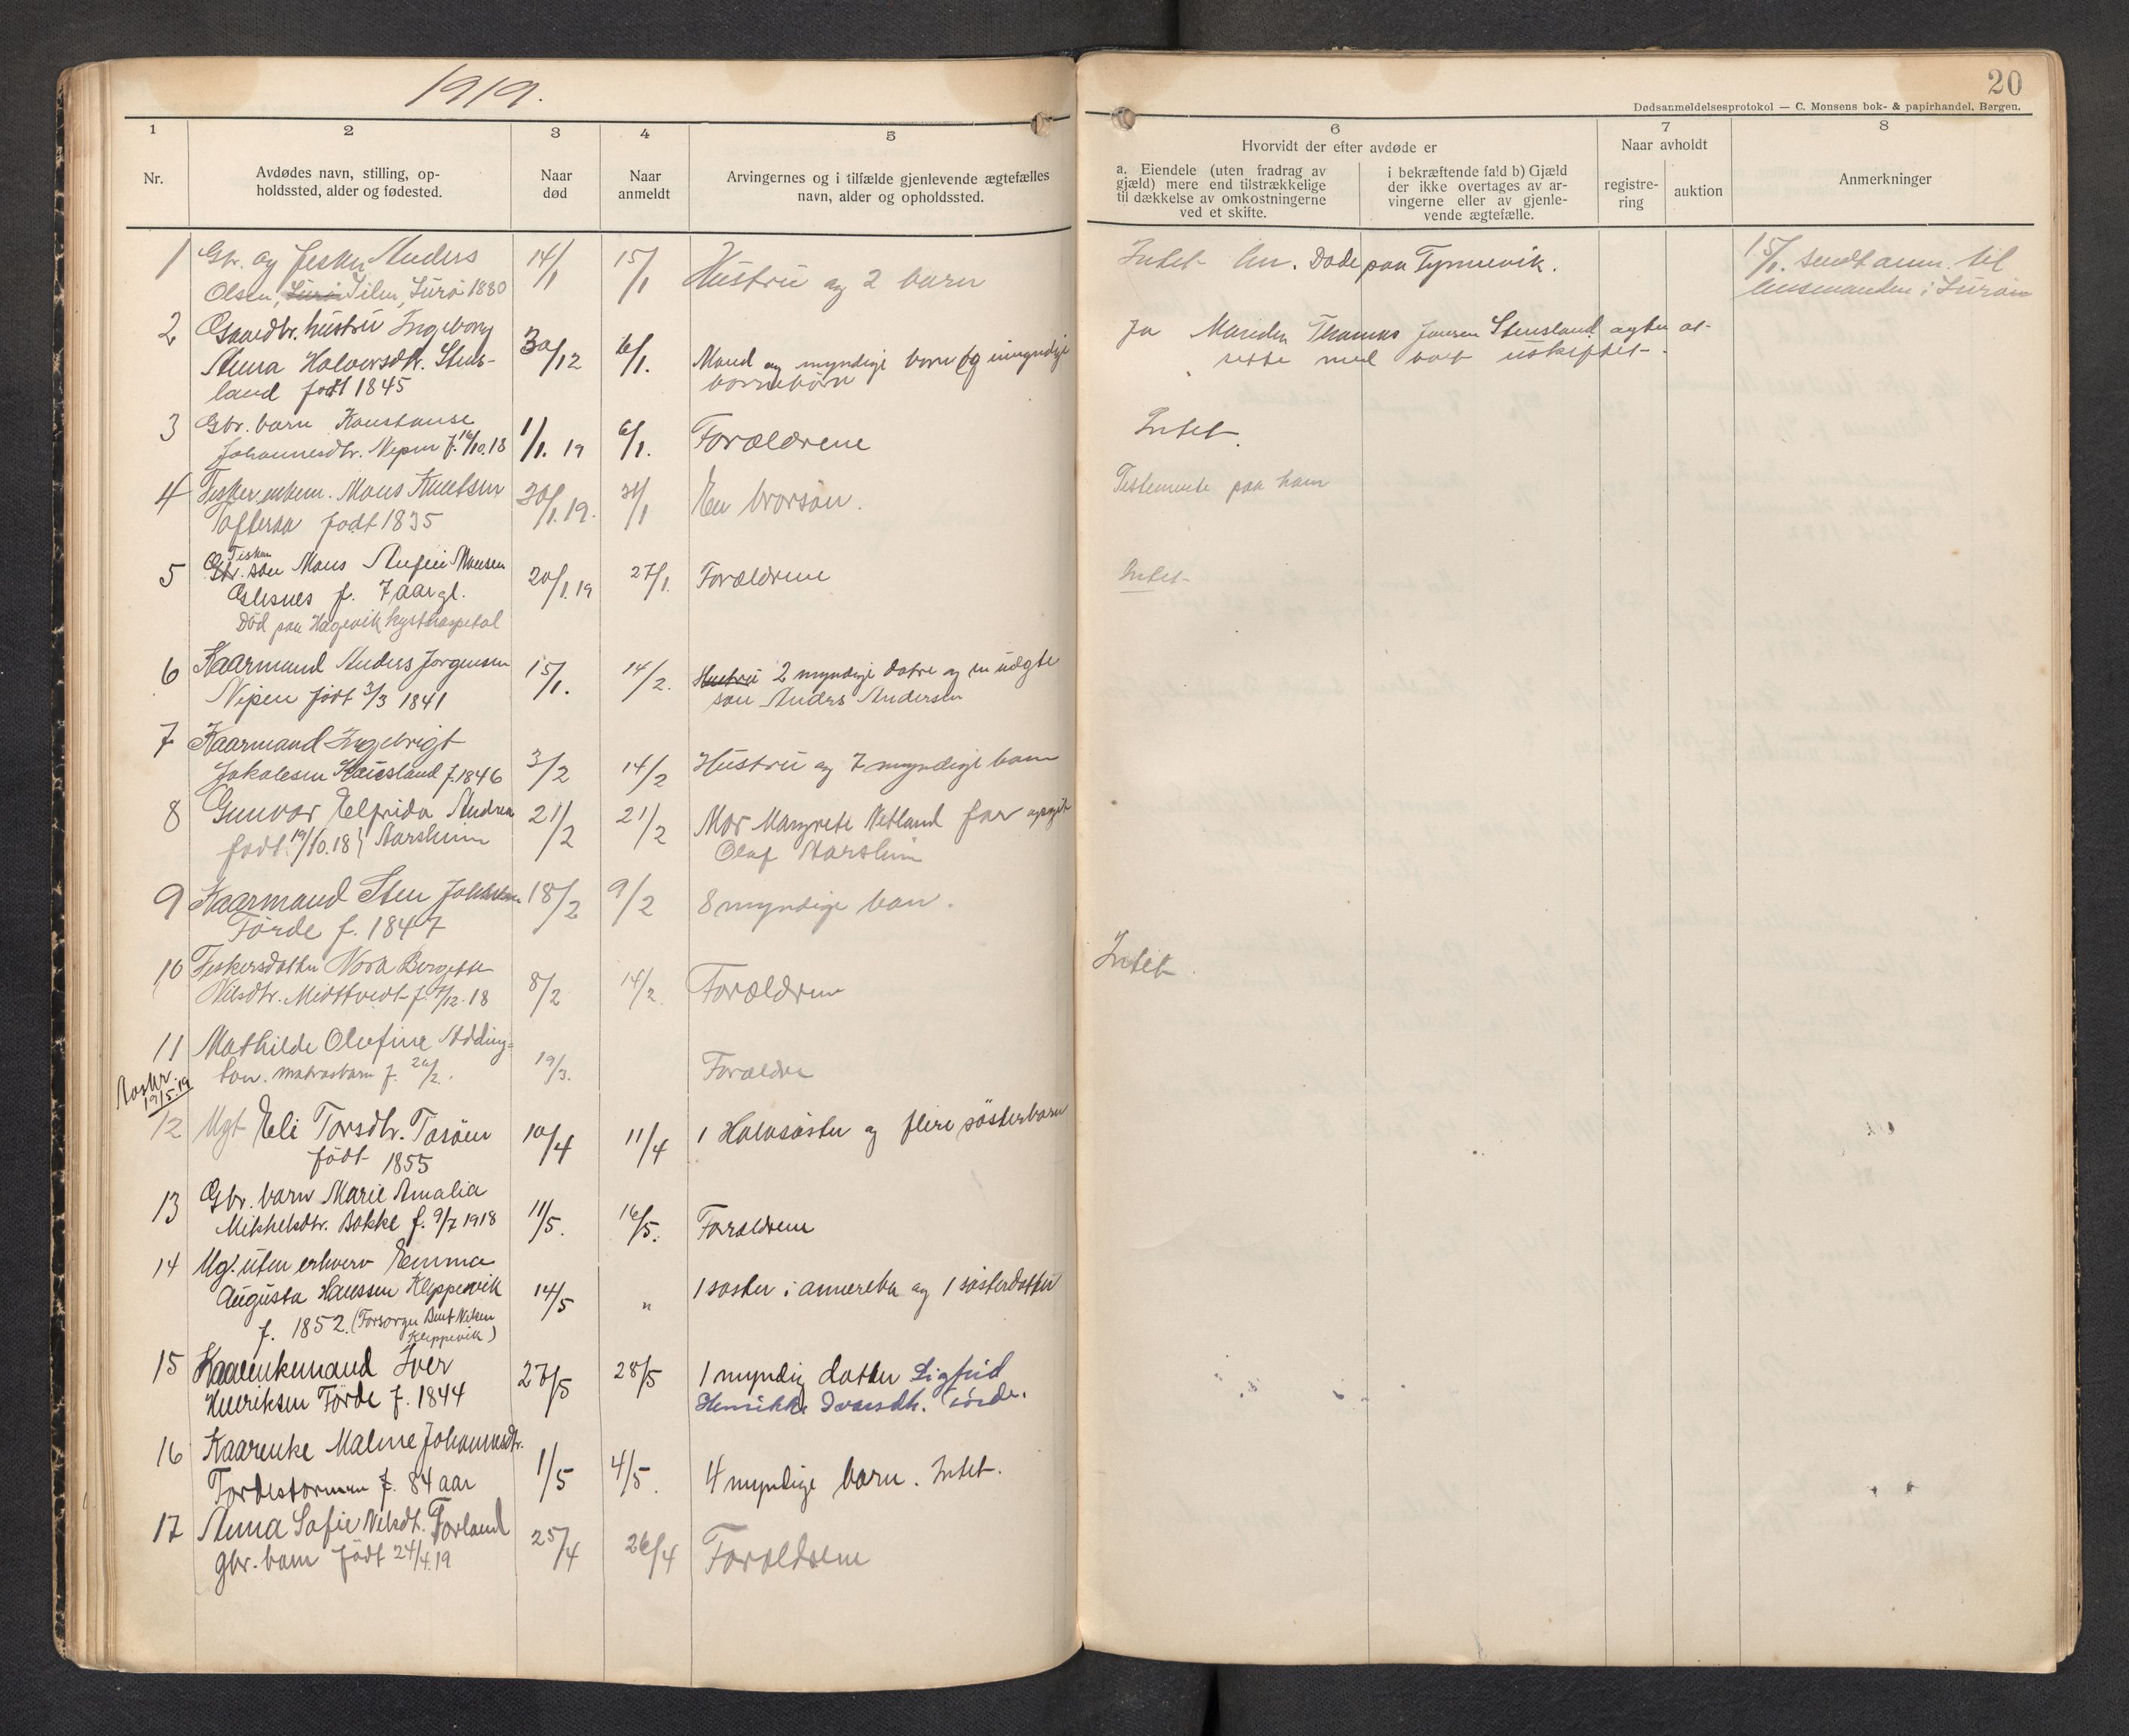 1919.
20
Dødsanmeldelsesprotokol — C. Monsens bok- & papirhandel, Bergen.
1
2
3
4
5
6
7
8
Nr.
Avdødes navn, stilling, op-
holdssted, alder og fødested.
Naar
død
Naar
anmeldt
Arvingernes og i tilfælde gjenlevende ægtefælles
navn, alder og opholdssted.
Hvorvidt der efter avdøde er
a. Eiendele (uten fradrag av
gjæld) mere end tilstrækkelige
til dækkelse av omkostningerne
ved et skifte.
i bekræftende fald b) Gjæld
der ikke overtages av ar-
vingerne eller av gjenle-
vende ægtefælle.
Naar avholdt
registre-
ring
auktion
Anmerkninger
1 Gbr. og fesker Anders
Olsen, 1880
14/1 15/1 Hustru og 2 barn
Intet Døde paa Tynnevik.
15/1. sendt anm. til
lensmanden i
2 Gaardbr. hustru Ingeborg
Anna Halvorsdtr. Stens-
land født 1845
30/12 6/1. Mand og myndige born og umyndige
Ja Manden Thomas Jansen Stensland agter at
sitte med boet uskiftet.
3 Gbr. barn Konstanse
Johannesdtr. Nepen f. 16/10.18
1/1. 19 6/1. Forældrene
Intet.
4 Fesker Mons Knutsen
født 1835
30/1.19. 31/1 En brorsøn.
Testemente paa ham
5 Gbr. Fisker søn Mons Monsen
Glesnes f. 7 aar gl.
Død paa Hagevik kysthospetal
20/1.19 27/1. Forældrene
Intet
6 Kaarmand Anders Jorgensen
Nipen født 3/3 1841
15/1. 14/2. Hustru 2 myndige døtre og en
søn Andrs Andersen
7 Kaarmand Ingebrigt
Jakobsen f. 1846
3/2 14/2 Hustru og 7 myndige barn
8 Gunvor Elfrida Andrea
født 19/10.18 Aarsheim
21/2 21/2 Mor Margrete Vetland far opgit
Olaf Aarsheim
9 Kaarmand Sten
Førde f. 1847
18/2 9/2 8 myndige barn.
10 Feskersdatter Nora Bergette
Nilsdtr. Midttveit f. 7/12.18
8/2 14/2. Forældrene
Intet
11 Mathilde Olufine Adding-
ton. matrosbarn f. 20/2.
19/3. Forældre
19/5.19
12 Ugt Eli Torsdtr. Tosøen
født 1855
10/4 11/4 1 Halvsøster og flere søsterbarn
13 Gbr. barn Marie Amalia
Mikkelsdtr. Bakke f. 9/7 1918
11/5. 16/5. Forældrene
14 Ug. uten erhverv Emma
Augusta Hanssen Kleppevik
f. 1852. (Forsørger Bent Nilsen
Kleppevik)
14/5 " 1 søster i amereka og 1 søsterdatter
15 Kaarenkemand Iver
Henriksen Førde f. 1844
27/5 28/5 1 myndig datter Sigfrid
Henrikke Iversdtr. Førde.
16 Kaarenke Malene Johannesdtr.
f. 84 aar
1/5 4/5. 4 myndige barn. Intet.
17 Anna Sofie Nilsdt. Førland
gbr. barn født 24/4.19
25/4 26/4 Forældrene